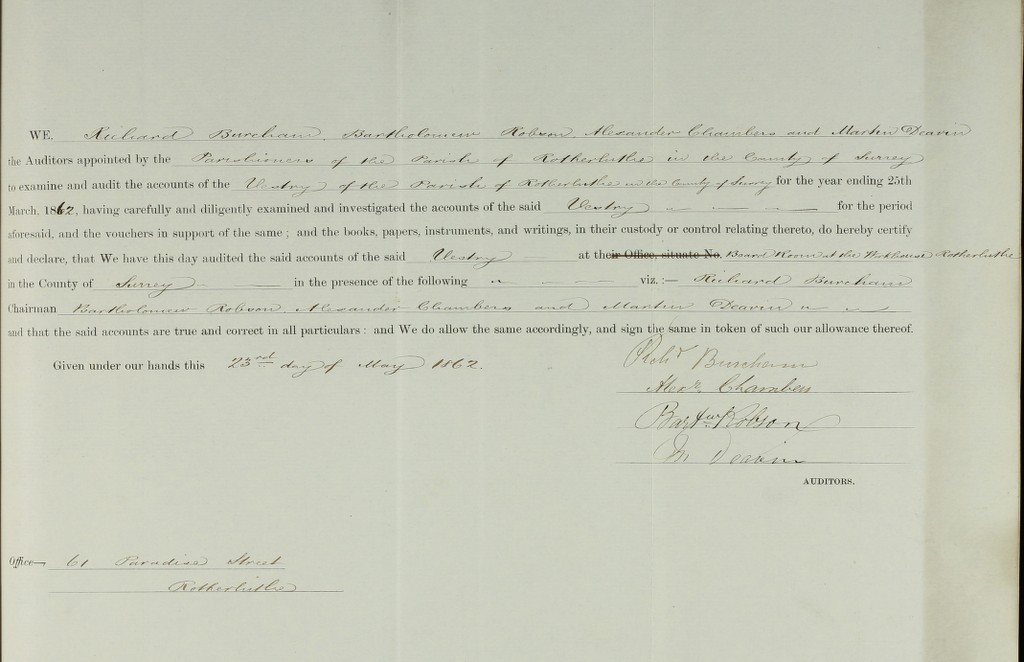 WE, Richard Burcham, Bartholomew Robson, Alexander Chambers and Martin Deavin
the Auditors appointed by the Parishioners of the Parish of Rotherhithe in the County of Surrey
to examine and audit the accounts of the Vestry of the Parish of Rotherhithe in the County of Surrey for the year ending 25th
March, 1862, having carefully and diligently examined and investigated the accounts of the said Vestry for the period
aforesaid, and the vouchers in support of the same; and the books, papers, instruments, and writings, in their custody or control relating thereto, do hereby certify
and declare, that We have this day audited the said accounts of the said Vestry at their Office, situate No. Board Room at the Workhouse Rotherhithe
in the County of Surrey in the presence of the following viz.:— Richard Burcham
Chairman Bartholomew Robson, Alexander Chambers and Martin Deavin
and that the said accounts are true and correct in all particulars: and We do allow the same accordingly, and sign the same in token of such our allowance thereof.
Given under our hands this 23rd day of May 1862.
Richd Burcham
Alexr Chambers
Bartw Robson
M Deavin
AUDITORS.
Office— 61 Paradise Street
Rotherhithe